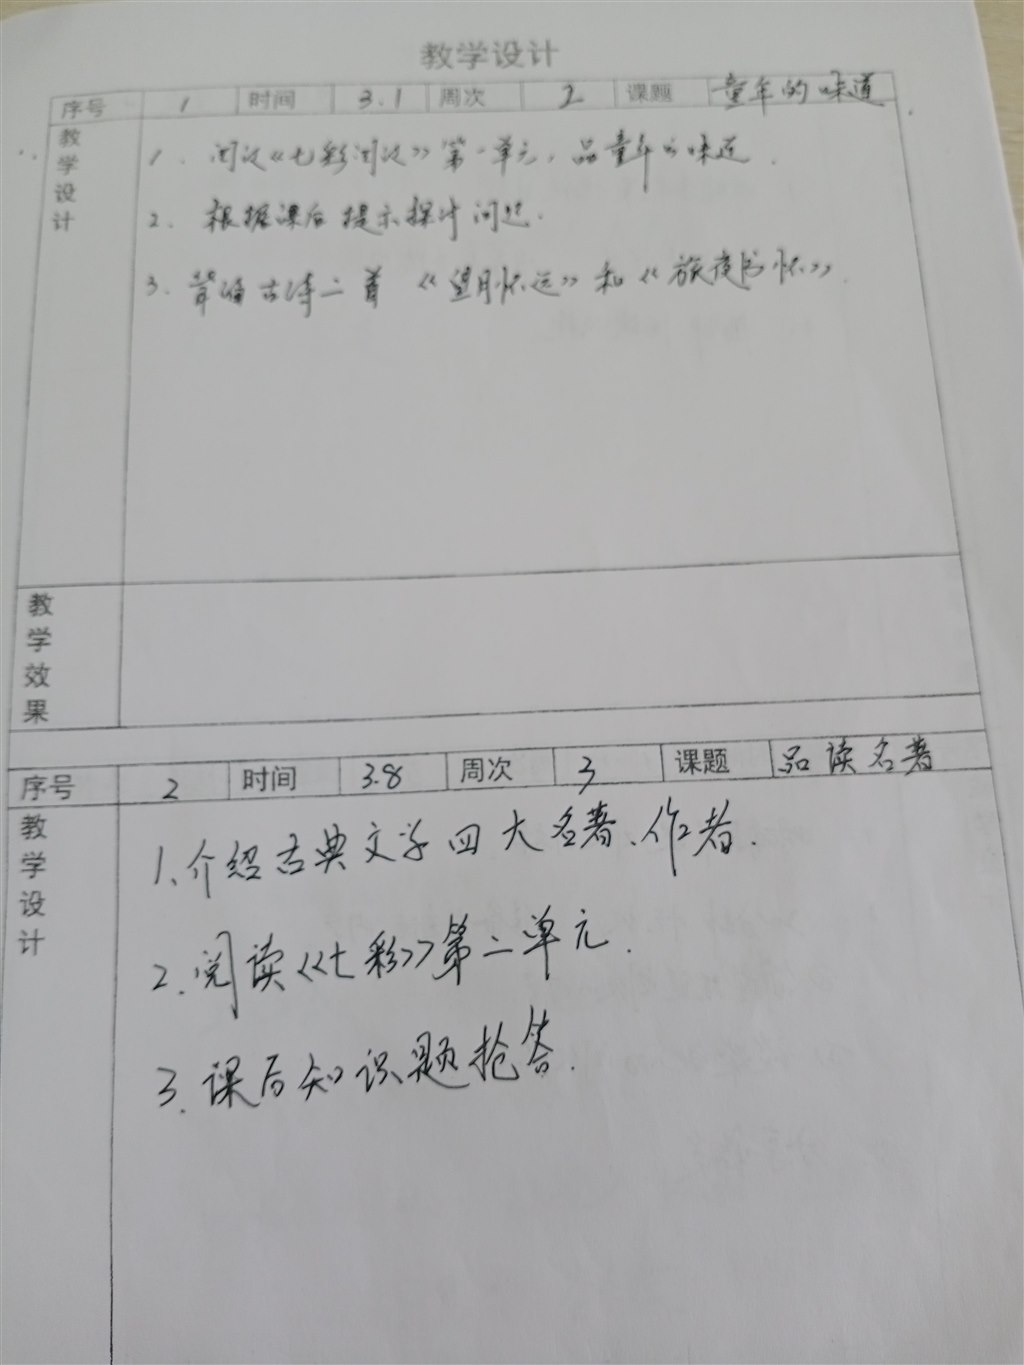 教学设计
序号 1 时间 3.1 周次 2 课题 童年的味道
教学设计
1. 阅读《七彩阅读》第一单元，品童年的味道.
2. 根据课后提示探讨问题.
3. 背诵古诗二首《望月怀远》和《旅夜书怀》.
教学效果
序号 2 时间 3.8 周次 3 课题 品读名著
教学设计
1、介绍古典文学四大名著、作者.
2.阅读《七彩》第二单元.
3.课后知识题抢答.